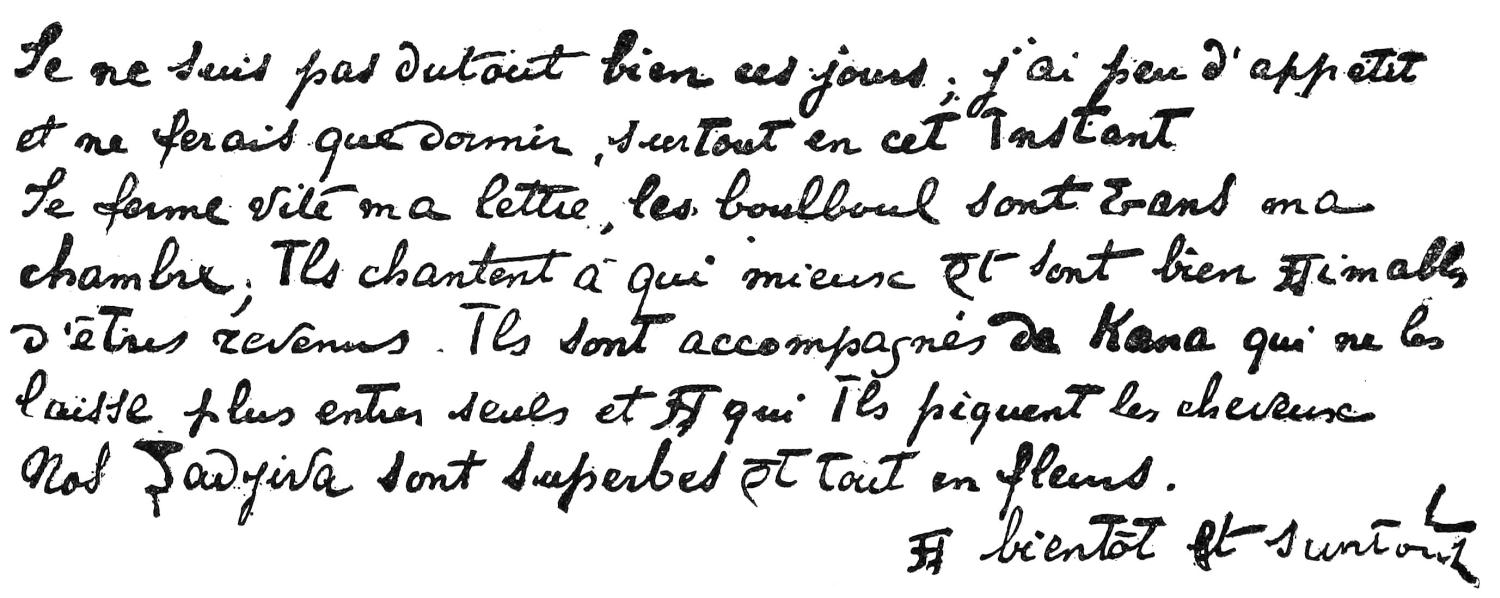 Je ne suis pas dutout bien ces jours ; j'ai peu d'appétit
et ne ferais que dormir, surtout en cet Instant
Je ferme vite ma lettre, les boulboul sont dans ma
chambre ; Ils chantent à qui mieux et sont bien Aimables
d'êtres revenus. Ils sont accompagnés de Kana qui ne les
laisse plus entrer seuls et A qui Ils piquent les cheveux
Nos Zadjiva sont superbes et tout en fleurs.
A bientôt et surtout